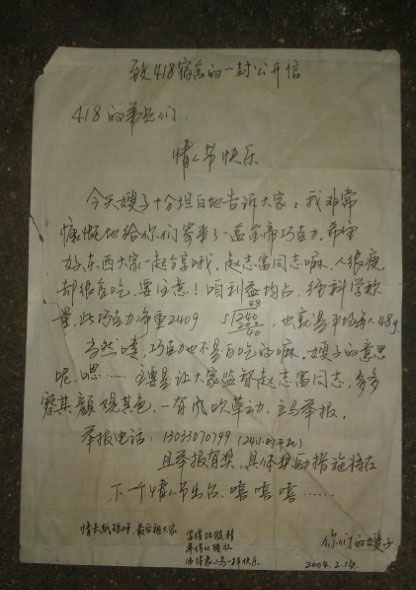 致418宿舍的一封公开信
418的弟兄们:
情人节快乐
今天嫂子十分坦白地告诉大家:我非常
慷慨地给你们寄来了一盒金帝巧克力,希望
好东西大家一起分享哦,赵志富同志嘛,人很瘦,
却很贪吃,要注意!咱利益均占,经科学称
量,此巧克力净重240g
48
5√240
200
40
,也就是平均每人48g
当然喽,巧克力也不是白吃的嘛,嫂子的意思
呢,嗯……主要是让大家监督赵志富同志,多多
察其颜观其色,一有风吹草动,立马举报,
举报电话:13033070799(24小时开机)
且举报有奖,具体奖励措施将在
下一个情人节出台,嘻嘻嘻……
情长纸短,最后祝大家
你们的嫂子
2004.2.14.